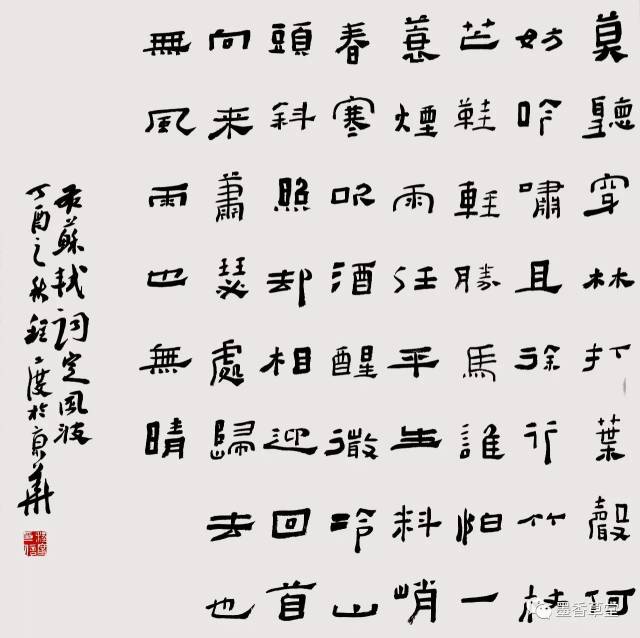 莫聽穿林打葉聲何
妨吟嘯且徐行竹杖
芒鞋輕勝馬誰怕一
蓑煙雨任平生料峭
春寒吹酒醒微冷山
頭斜照却相迎回首
向来蕭瑟處歸去也
無風雨也無晴
右蘇軾詞定風波
丁酉之秋度於京華
墨香草堂